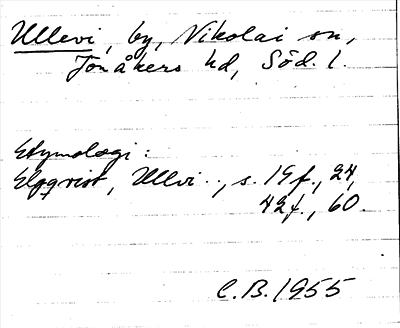 Ullevi, by, Nikolai sn,
Jonåkers hd, Söd. l.
Etymologi:
Elgqvist, Ullvi.., s. 19 f., 24,
42 f., 60.
C.B. 1955